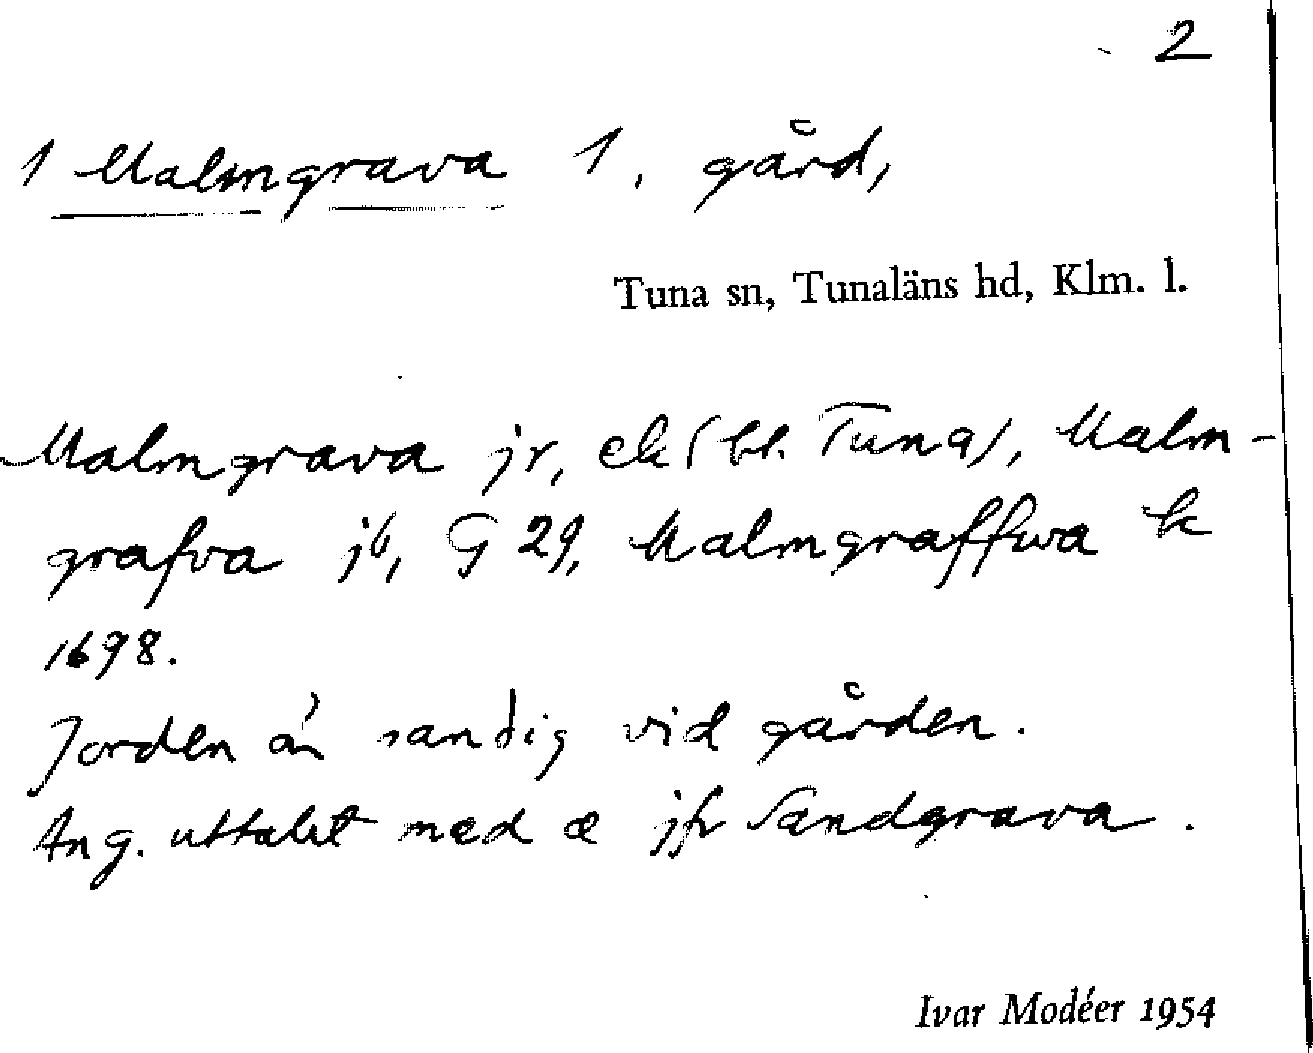 2
1 Malmgrava 1, gård,
Tuna sn, Tunaläns hd, Klm. l.
Malmgrava jr, ek (bl. Tuna), Malm-
grafva jb, G 29, Malmgraffwa k
1698.
Jorden är sandig vid gården.
Ang. uttalet med æ jfr Sandgrava.
Ivar Modéer 1954